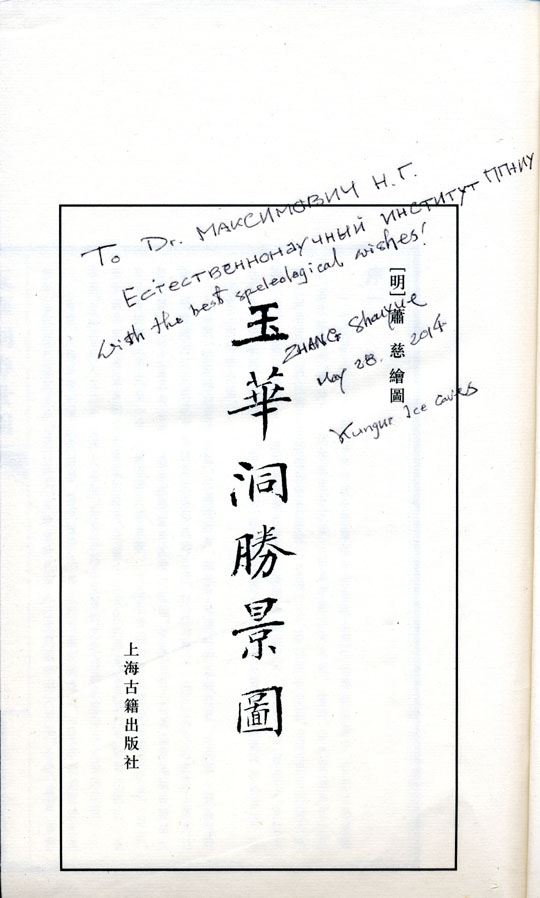 To Dr. МАКСИМОВИЧ Н.Г.
ЕСТЕСТВЕННОНАУЧНЫЙ ИНСТИТУТ ПГНИУ
with the best speleological wishes!
ZHANG Shouyue
May 28. 2014
Kungur Ice Caves
[明]蕭慈繪圖
玉華洞勝景圖
上海古籍出版社